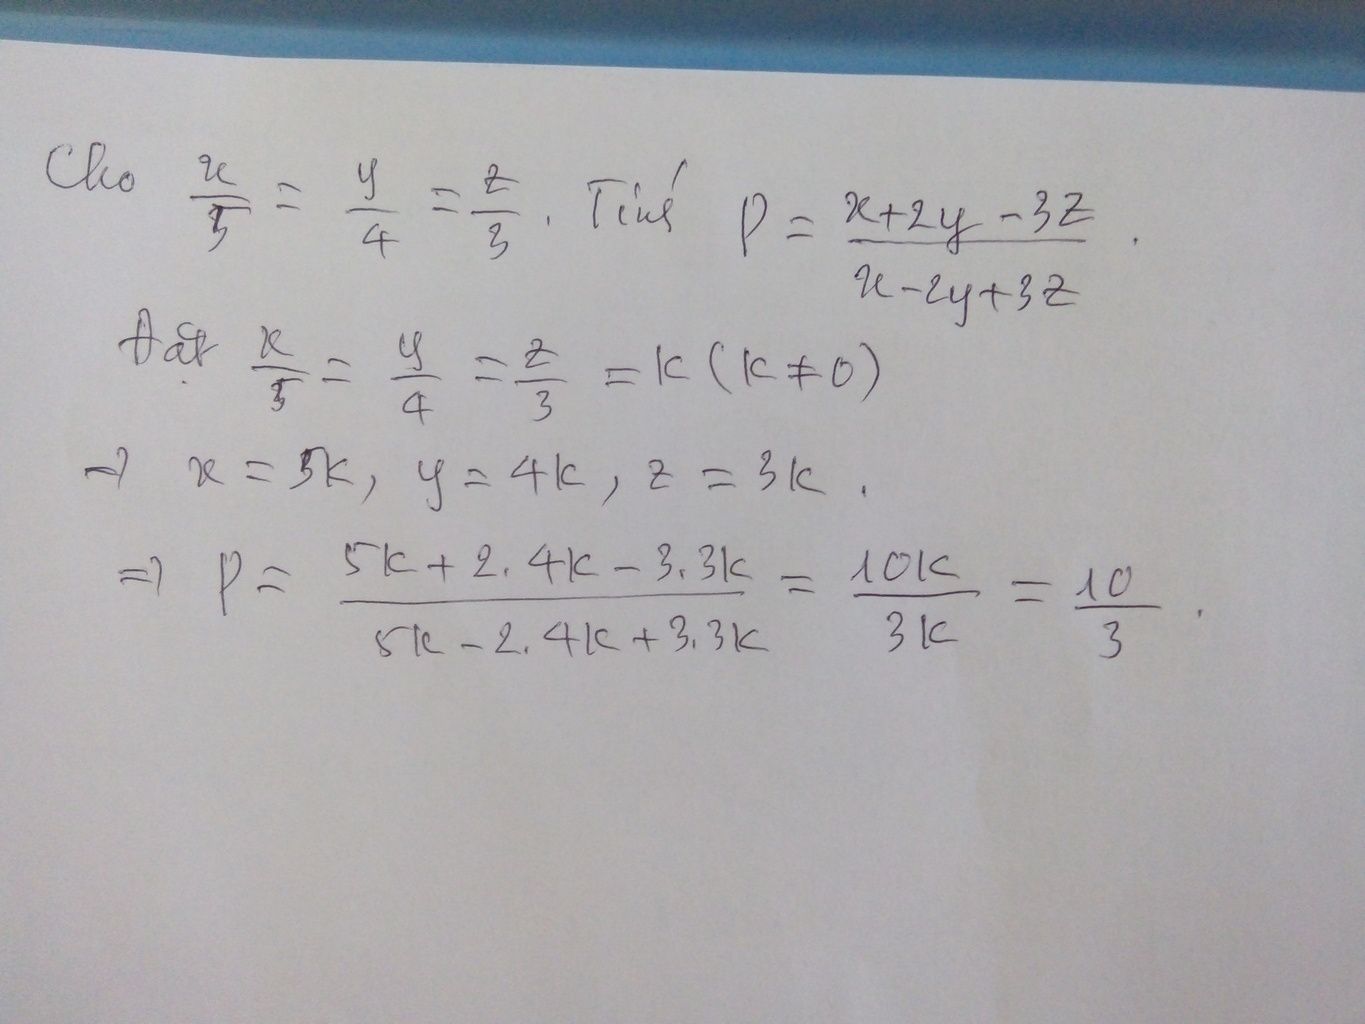 Cho x/5 = y/4 = z/3. Tính P = (x+2y-3z)/(x-2y+3z).
Đặt x/5 = y/4 = z/3 = k (k ≠ 0)
→ x = 5k, y = 4k, z = 3k.
⇒ P = (5k + 2.4k - 3.3k)/(5k - 2.4k + 3.3k) = 10k/3k = 10/3.